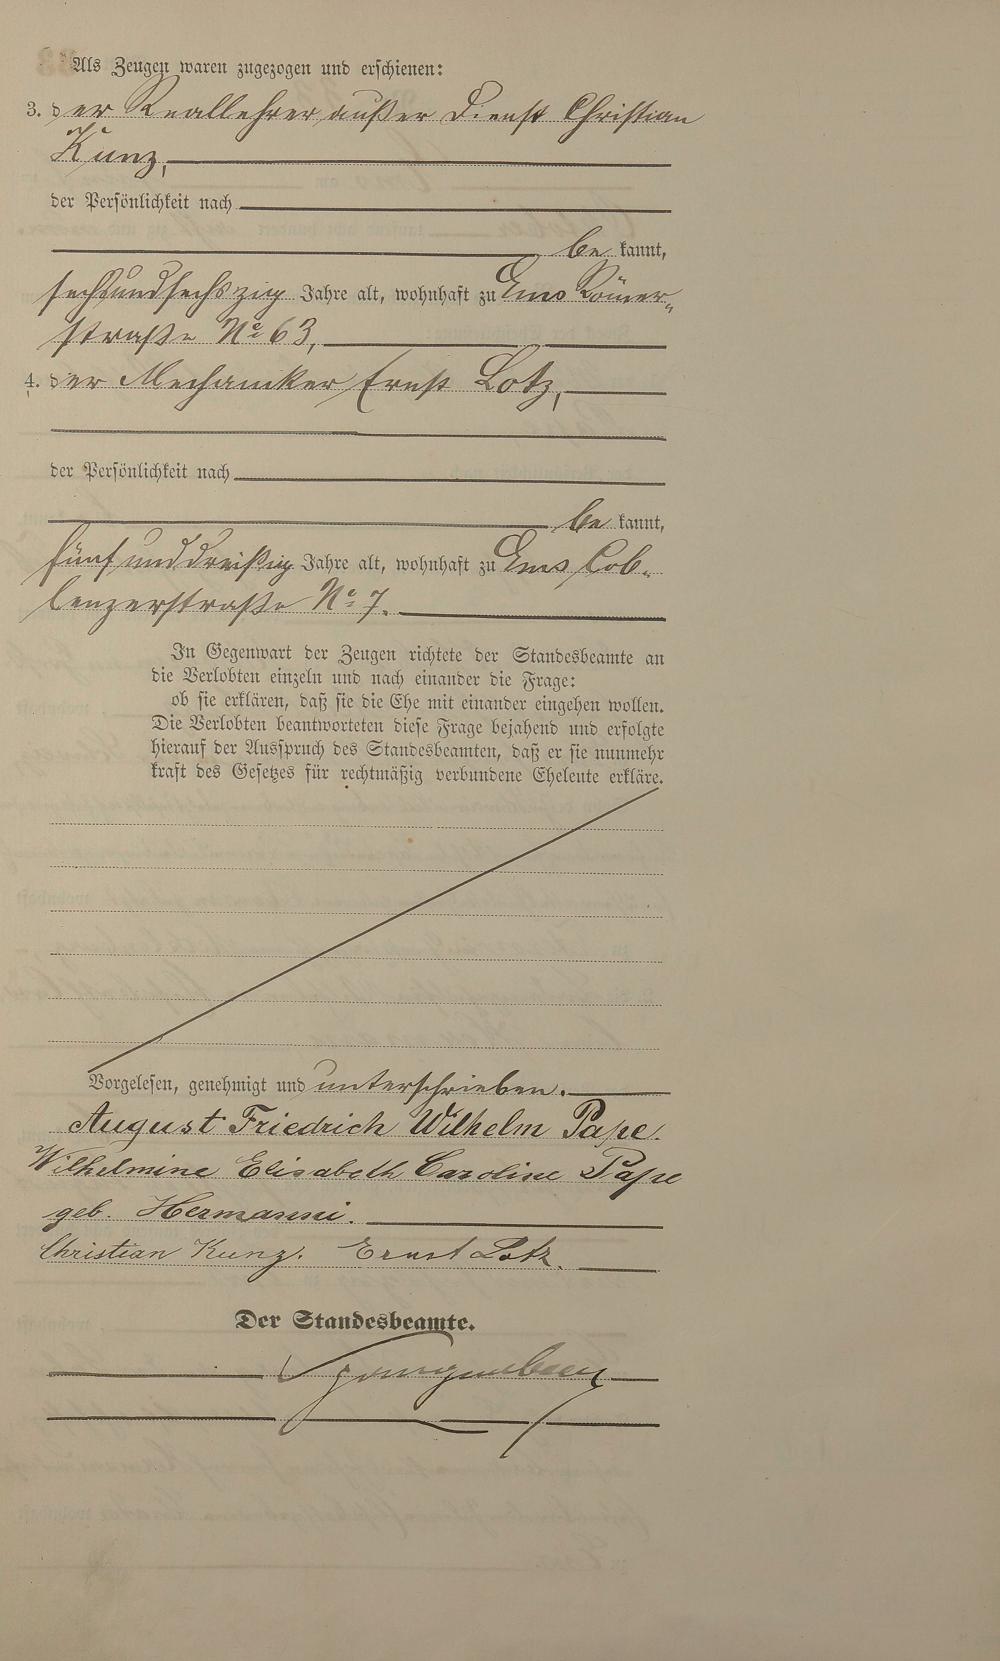 Als Zeugen waren zugezogen und erschienen:
3. der Reallehrer außer Dienst Christian
Kunz,
der Persönlichkeit nach
be kannt,
sechsundsechszig Jahre alt, wohnhaft zu Ems Römer„
straße No 63,
4. der Mechaniker Ernst Lotz,
der Persönlichkeit nach
be kannt,
fünfunddreißig Jahre alt, wohnhaft zu Ems, Cob„
lenzerstraße No 7.
In Gegenwart der Zeugen richtete der Standesbeamte an
die Verlobten einzeln und nach einander die Frage:
ob sie erklären, daß sie die Ehe mit einander eingehen wollen.
Die Verlobten beantworteten diese Frage bejahend und erfolgte
hierauf der Ausspruch des Standesbeamten, daß er sie nunmehr
kraft des Gesetzes für rechtmäßig verbundene Eheleute erkläre.
Vorgelesen, genehmigt und unterschrieben.
August Friedrich Wilhelm Pape.
Wilhelmine Elisabeth Caroline Pape
geb. Hermanni.
Christian Kunz. Ernst Lotz.
Der Standesbeamte.